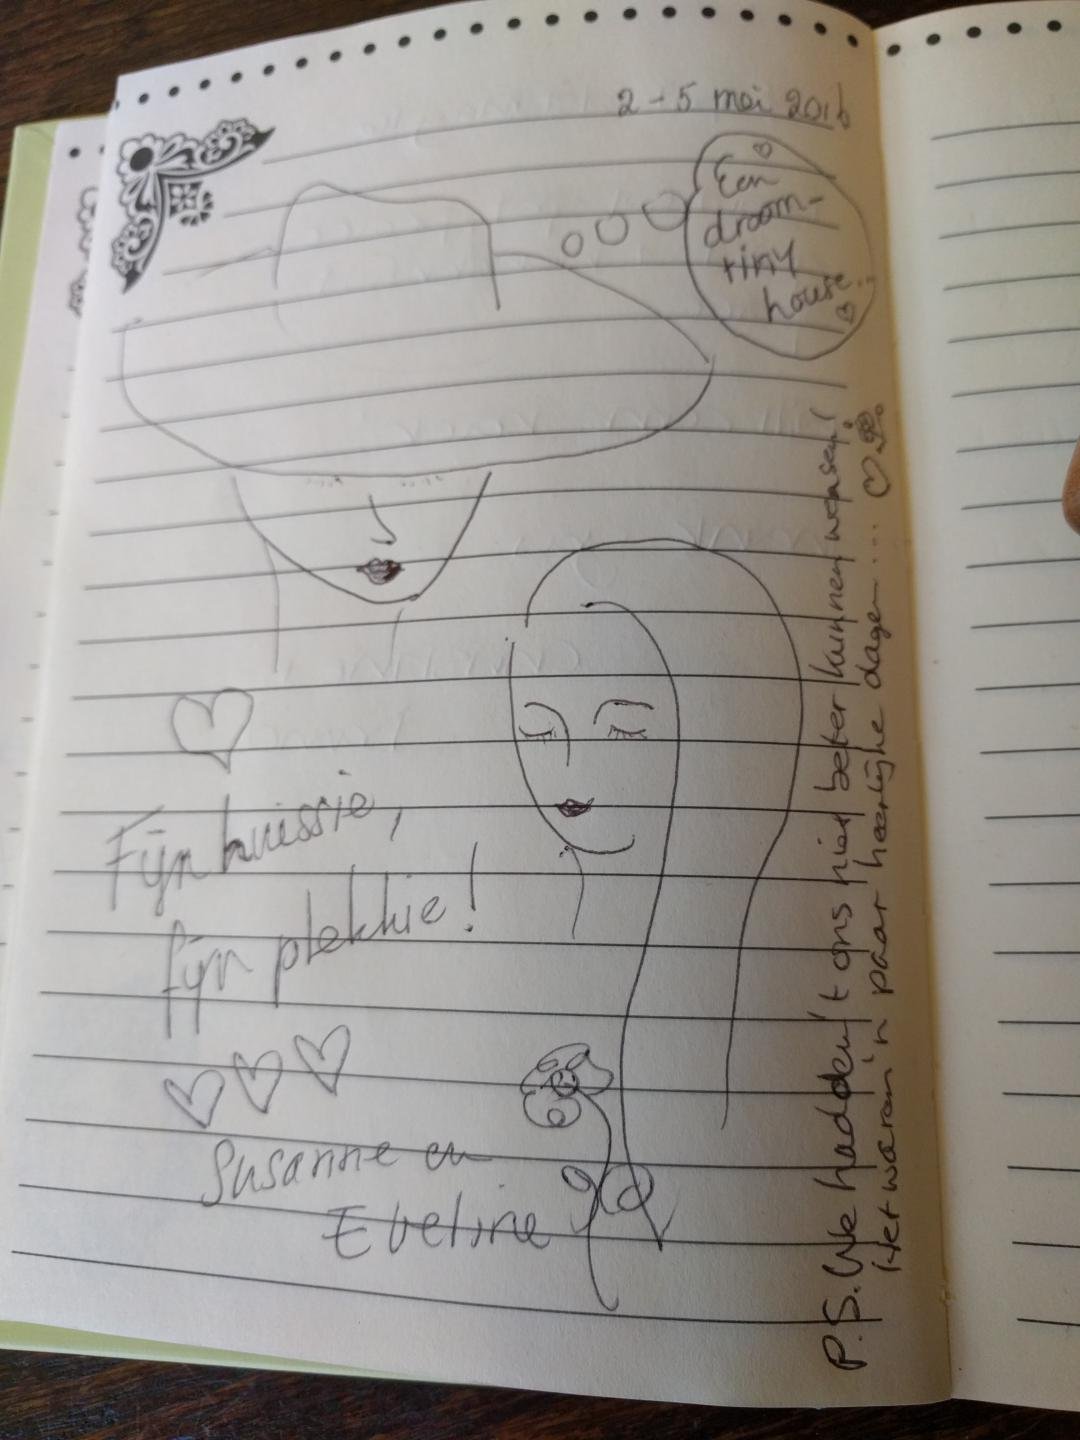 2 - 5 mei 2016
Een
droom-
tiny
house
Fijn huissie,
fijn plekkie!
Susanne en
Eveline
P.S. We hadden 't ons niet beter kunnen wensen!
Het waren 'n paar heerlijke dagen....